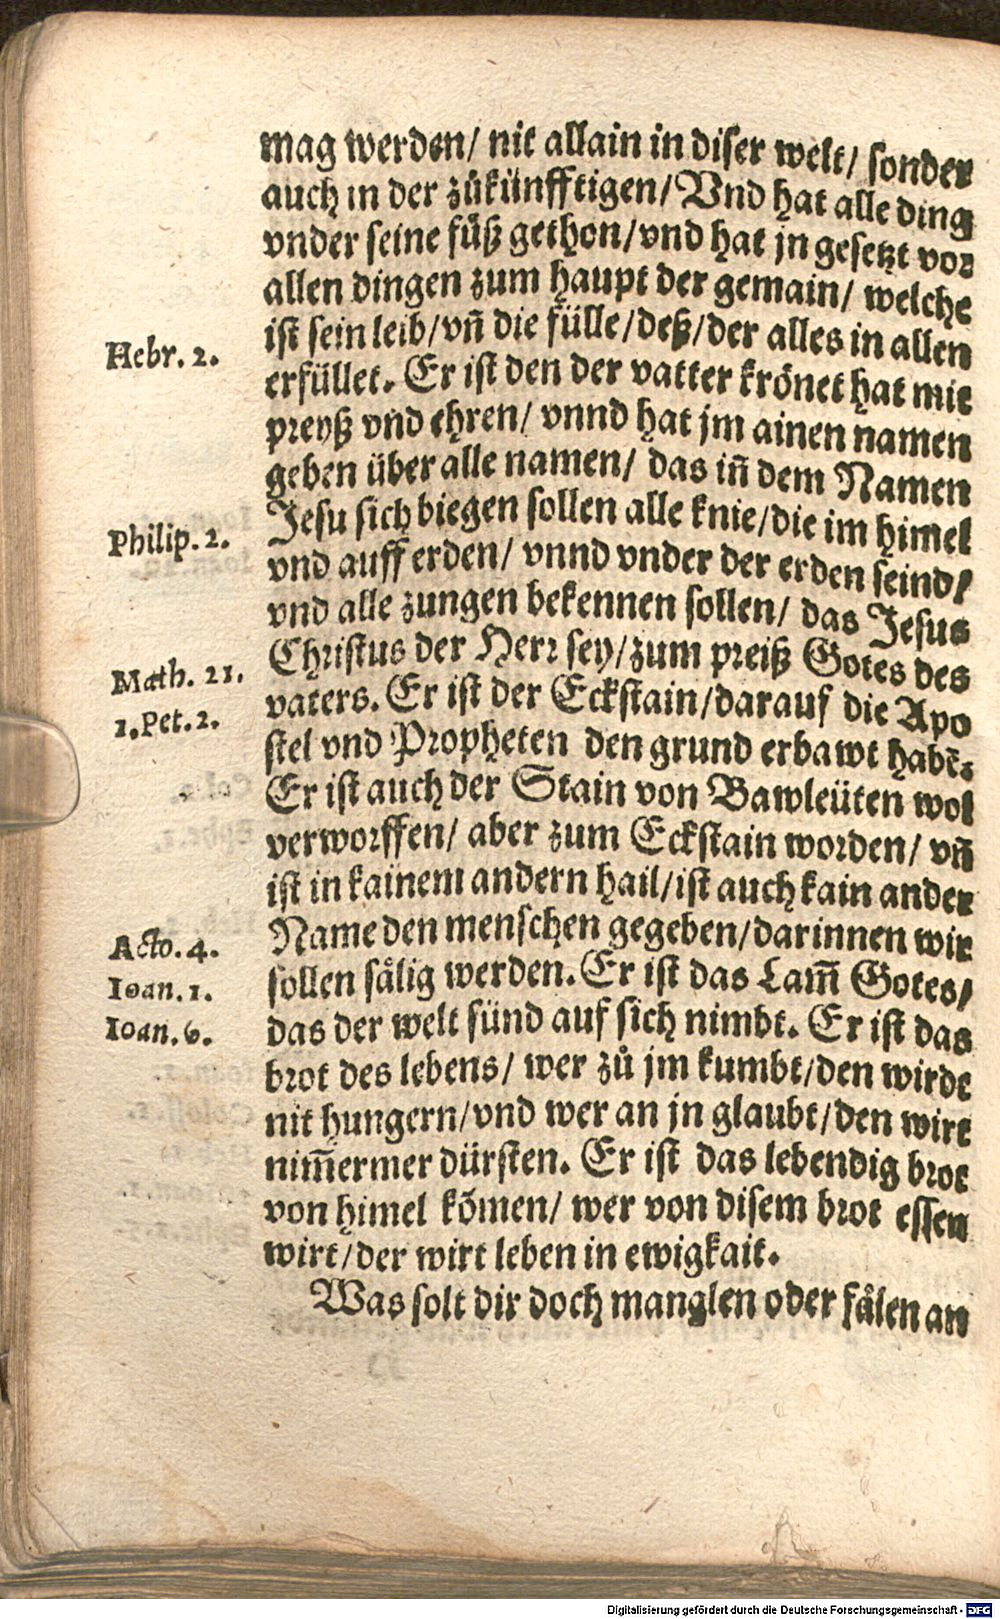 mag werden/ nit allain in diser welt/ sonder
auch in der zůkünfftigen/ Vnd hat alle ding
vnder seine füß gethon/ vnd hat jn gesetzt vor
allen dingen zum haupt der gemain/ welche
ist sein leib/ vn̄ die fülle/ deß/ der alles in allen
Hebr. 2.
erfüllet. Er ist den der vatter krönet hat mit
preyß vnd ehren/ vnnd hat jm ainen namen
geben über alle namen/ das in̄ dem Namen
Jesu sich biegen sollen alle knie/ die im himel
Philip. 2.
vnd auff erden/ vnnd vnder der erden seind/
vnd alle zungen bekennen sollen/ das Jesus
Christus der Herr sey/ zum preiß Gotes des
Math. 21.
vaters. Er ist der Eckstain/ darauf die Apo
1. Pet. 2.
stel vnd Propheten den grund erbawt habē.
Er ist auch der Stain von Bawleüten wol
verworffen/ aber zum Eckstain worden/ vn̄
ist in kainem andern hail/ ist auch kain ander
Name den menschen gegeben/ darinnen wir
Acto. 4.
sollen sålig werden. Er ist das Lam̄ Gotes/
Ioan. 1.
das der welt sünd auf sich nimbt. Er ist das
Ioan. 6.
brot des lebens/ wer zů jm kumbt/ den wirdt
nit hungern/ vnd wer an jn glaubt/ den wirt
nim̄ermer dürsten. Er ist das lebendig brot
von himel kōmen/ wer von disem brot essen
wirt/ der wirt leben in ewigkait.
Was solt dir doch manglen oder fålen an
Digitalisierung gefördert durch die Deutsche Forschungsgemeinschaft - DFG